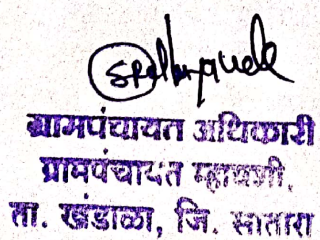 ग्रामपंचायत अधिकारी
ग्रामपंचायत म्हावशी,
ता. खंडाळा, जि. सातारा